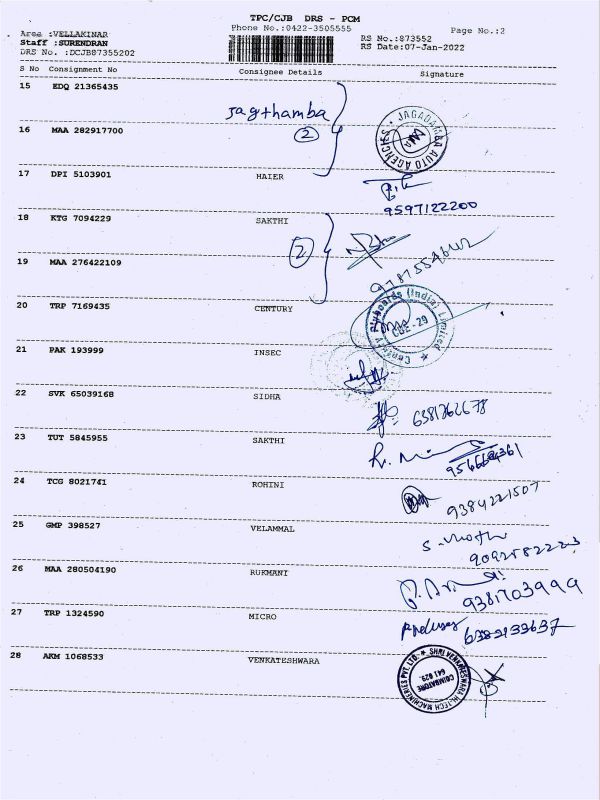 TPC/CJB DRS - PCM
Phone No.:0422-3505555
Page No.:2
Area :VELLAKINAR
Staff :SURENDRAN
DRS No. :DCJB87355202
RS No.:873552
RS Date:07-Jan-2022
S No Consignment No Consignee Details Signature
15 EDQ 21365435
Jagthamba
2
16 MAA 282917700
JAGADAMBA AUTO AGENCIES
17 DPI 5103901 HAIER
9597122200
18 KTG 7094229 SAKTHI
2
19 MAA 276422109
20 TRP 7169435 CENTURY
Century Plyboards (India) Limited
CBE-29
21 PAK 193999 INSEC
22 SVK 65039168 SIDHA
6381262678
23 TUT 5845955 SAKTHI
24 TCG 8021741 ROHINI
9384221507
25 GMP 398527 VELAMMAL
26 MAA 280504190 RUKMANI
9381703999
27 TRP 1324590 MICRO
6382133637
28 AKM 1068533 VENKATESHWARA
SHRI VENKATESWARA HI.TECH MACHINERIES PVT. LTD.
COIMBATORE
641 029.